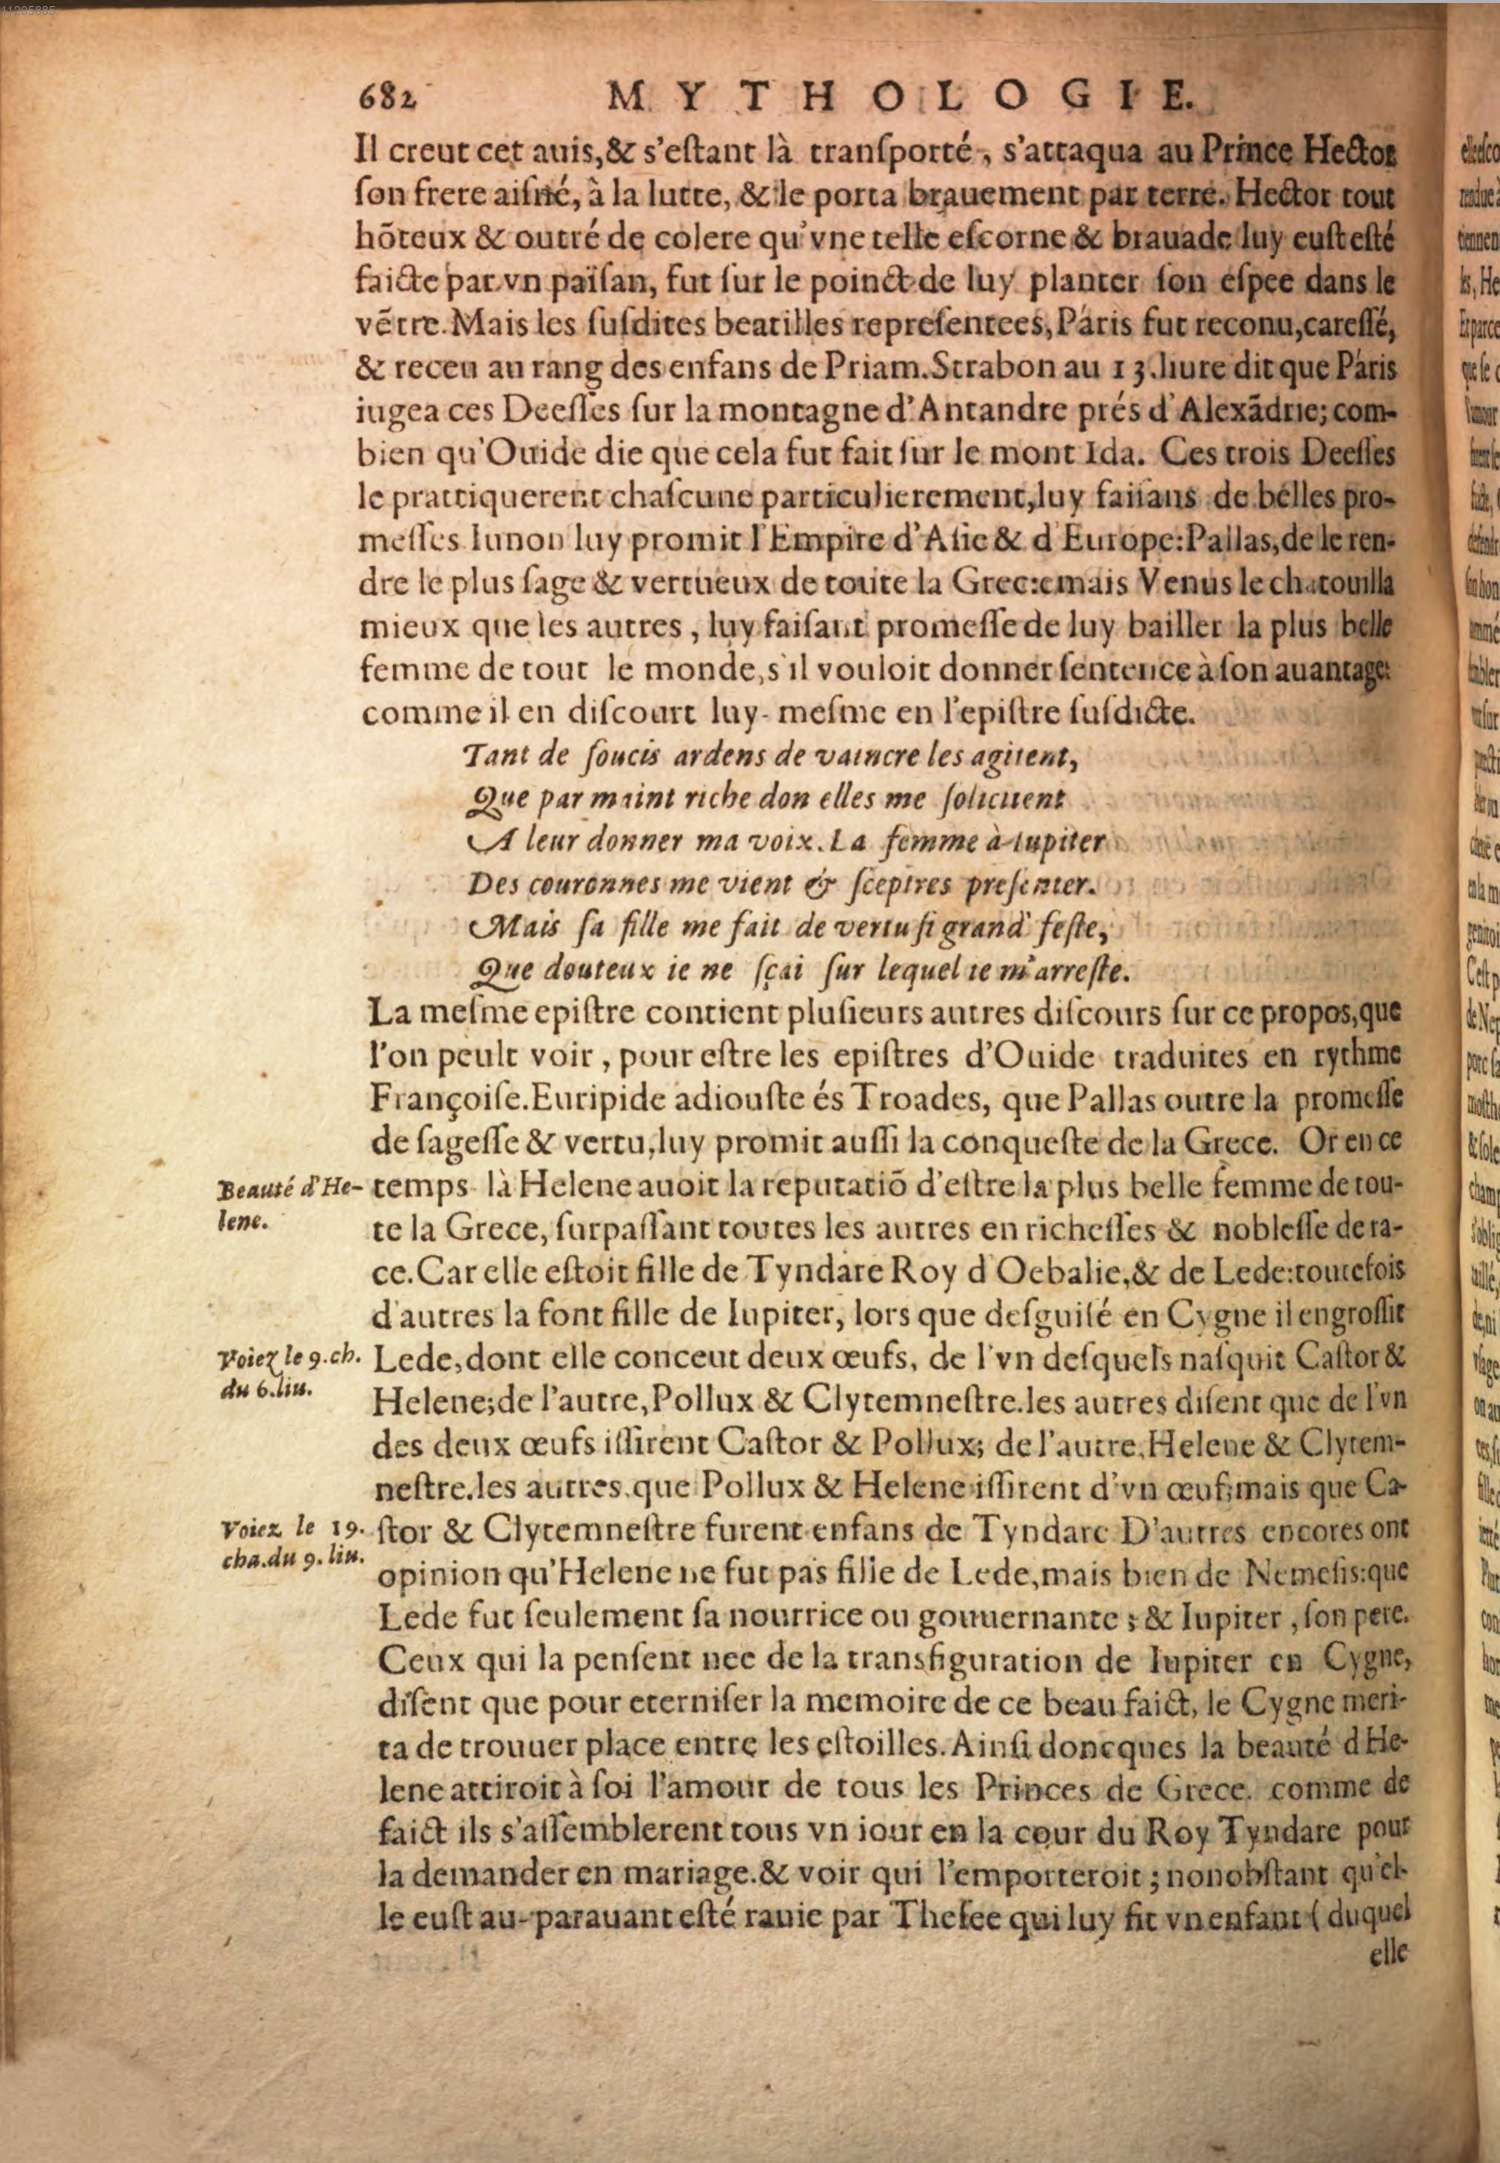 682 MYTHOLOGIE.
Il creut cet auis,& s'eſtant là tranſporté, s'attaqua au Prince Hector
ſon frere aiſné, à la lutte, & le porta brauement par terre. Hector tout
hõteux & outré de colere qu'vne telle eſcorne & brauade luy euſt eſté
faicte par vn païſan, fut ſur le poinct de luy planter ſon eſpee dans le
vẽtre. Mais les ſuſdites beatilles repreſentees, Pâris fut reconu,careſſé,
& receu au rang des enfans de Priam. Strabon au 13.liure dit que Pâris
iugea ces Deeſſes ſur la montagne d'Antandre prés d'Alexãdrie; com-
bien qu'Ouide die que cela fut fait ſur le mont Ida. Ces trois Deeſſes
le prattiquerent chaſcune particulierement,luy faiſans de belles pro-
meſſes Iunon luy promit l'Empire d'Aſie & d'Europe:Pallas,de le ren-
dre le plus ſage & vertueux de toute la Grece:mais Venus le chatouilla
mieux que les autres, luy faiſant promeſſe de luy bailler la plus belle
femme de tout le monde,s'il vouloit donner ſentence à ſon auantage:
comme il en diſcourt luy-meſme en l'epiſtre ſuſdicte.
Tant de ſoucis ardens de vaincre les agitent,
Que par maint riche don elles me ſolicitent
A leur donner ma voix. La femme à Iupiter
Des couronnes me vient & ſceptres preſenter.
Mais ſa fille me fait de vertu ſi grand' feſte,
Que douteux ie ne ſçai ſur lequel ie m'arreſte.
La meſme epiſtre contient pluſieurs autres diſcours ſur ce propos,que
l'on peult voir, pour eſtre les epiſtres d'Ouide traduites en rythme
Françoiſe.Euripide adiouſte és Troades, que Pallas outre la promeſſe
de ſageſſe & vertu,luy promit auſſi la conqueſte de la Grece. Or en ce
Beauté d'He-
lene.
temps là Helene auoit la reputatiõ d'eſtre la plus belle femme de tou-
te la Grece, ſurpaſſant toutes les autres en richeſſes & nobleſſe de ra-
ce.Car elle eſtoit fille de Tyndare Roy d'Oebalie,& de Lede:toutefois
d'autres la font fille de Iupiter, lors que deſguiſé en Cygne il engroſſit
Voiez le 9.ch.
du 6.liu.
Lede,dont elle conceut deux œufs, de l'vn deſquels naſquit Caſtor &
Helene;de l'autre,Pollux & Clytemneſtre.les autres diſent que de l'vn
des deux œufs iſſirent Caſtor & Pollux; de l'autre,Helene & Clytem-
neſtre.les autres,que Pollux & Helene iſſirent d'vn œuf;mais que Ca-
Voiez le 19.
cha.du 9.liu.
ſtor & Clytemneſtre furent enfans de Tyndare D'autres encores ont
opinion qu'Helene ne fut pas fille de Lede,mais bien de Nemeſis:que
Lede fut ſeulement ſa nourrice ou gouuernante ; & Iupiter, ſon pere.
Ceux qui la penſent nee de la transfiguration de Iupiter en Cygne,
diſent que pour eterniſer la memoire de ce beau faict, le Cygne meri-
ta de trouuer place entre les eſtoilles. Ainſi doncques la beauté d'He-
lene attiroit à ſoi l'amour de tous les Princes de Grece. comme de
faict ils s'aſſemblerent tous vn iour en la cour du Roy Tyndare pour
la demander en mariage.& voir qui l'emporteroit ; nonobſtant qu'el-
le euſt au-parauant eſté rauie par Theſee qui luy fit vn enfant (duquel
elle